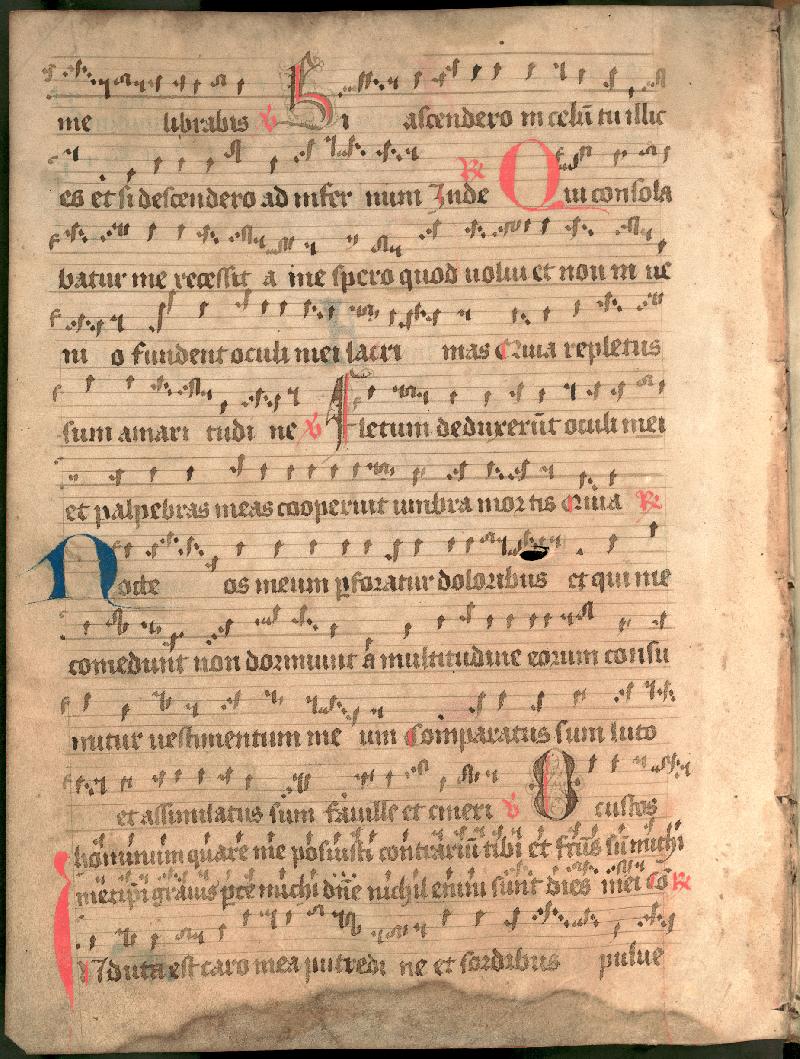 me librabis ℣ Si ascendero in celū tu illic
es et si descendero ad infer num Inde ℟ Qui consola
batur me recessit a me spero quod uolui et non in ue
ni o fundent oculi mei lacri mas Quia repletus
sum amari tudi ne ℣ Fletum deduxerūt oculi mei
et palpebras meas cooperuit umbra mortis Quia ℟
Nocte os meum ꝑforatur doloribus et qui me
comedunt non dormiunt a multitudine eorum consu
mitur uestimentum me um Comparatus sum luto
et assimilatus sum fauille et cineri ℣ O custos
hominum quare me posuisti contrariū tibi et fcūs sū michi
metipi grauis ꝑce michi dn̄e nichil enim sunt dies mei Cō ℟
Induta est caro mea putredi ne et sordibus pulue